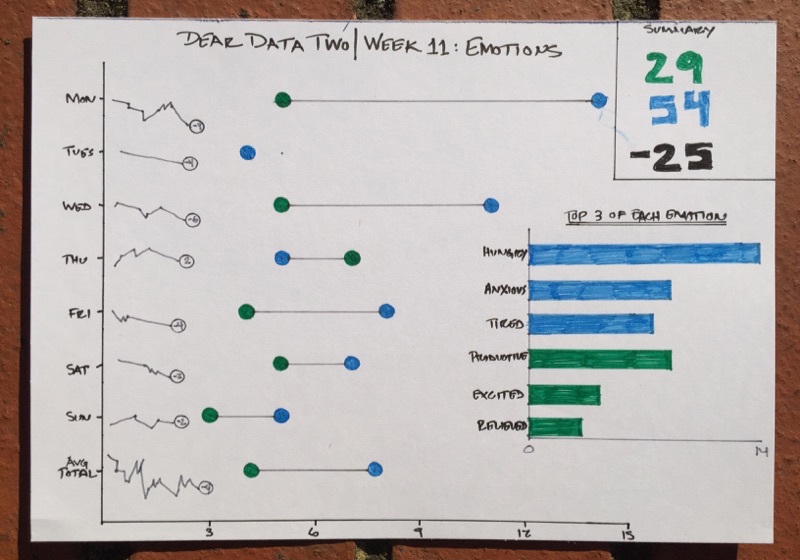 DEAR DATA TWO | WEEK 11: EMOTIONS
SUMMARY
29
54
-25
MON
-9
TUES
-4
WED
-6
THU
2
FRI
-4
SAT
-2
SUN
-2
AVG
TOTAL
-4
3 6 9 12 15
TOP 3 OF EACH EMOTION
HUNGRY
ANXIOUS
TIRED
PRODUCTIVE
EXCITED
RELIEVED
0 14